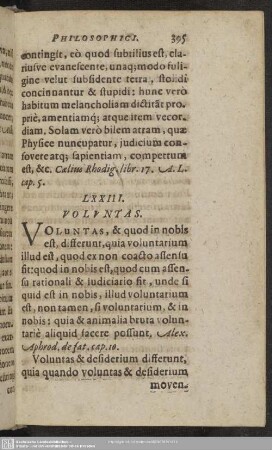 PHILOSOPHICI. 395
contingit, eò quod subtilius est, cla-
riusve evanescente, unaq; modo fuli-
gine velut subsidente tetra, stolidi
concinnantur & stupidi: hunc verò
habitum melancholiam dictitãt pro-
priè, amentiamq; atque item vecor-
diam. Solam verò bilem atram, quæ
Physice nuncupatur, judicium con-
fovere atq; sapientiam, compertum
est, &c. Cælius Rhodig. libr. 17. A. L.
cap. 5.
LXXIII.
VOLVNTAS.
VOLUNTAS, & quod in nobis
est, differunt, quia voluntarium
illud est, quod ex non coacto assensu
fit: quod in nobis est, quod cum assen-
su rationali & judiciario fit, unde si
quid est in nobis, illud voluntarium
est, non tamen, si voluntarium, & in
nobis: quia & animalia bruta volun-
tariè aliquid facere possunt, Alex.
Aphrod. de fat. cap. 10.
Voluntas & desiderium differunt,
quia quando voluntas & desiderium
moven-